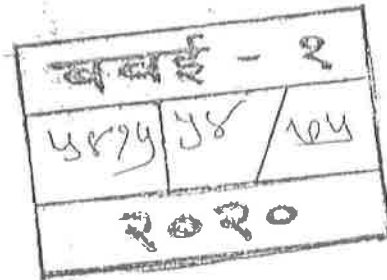 बबई - २
५४१५ ५४ / १०५
२०२०